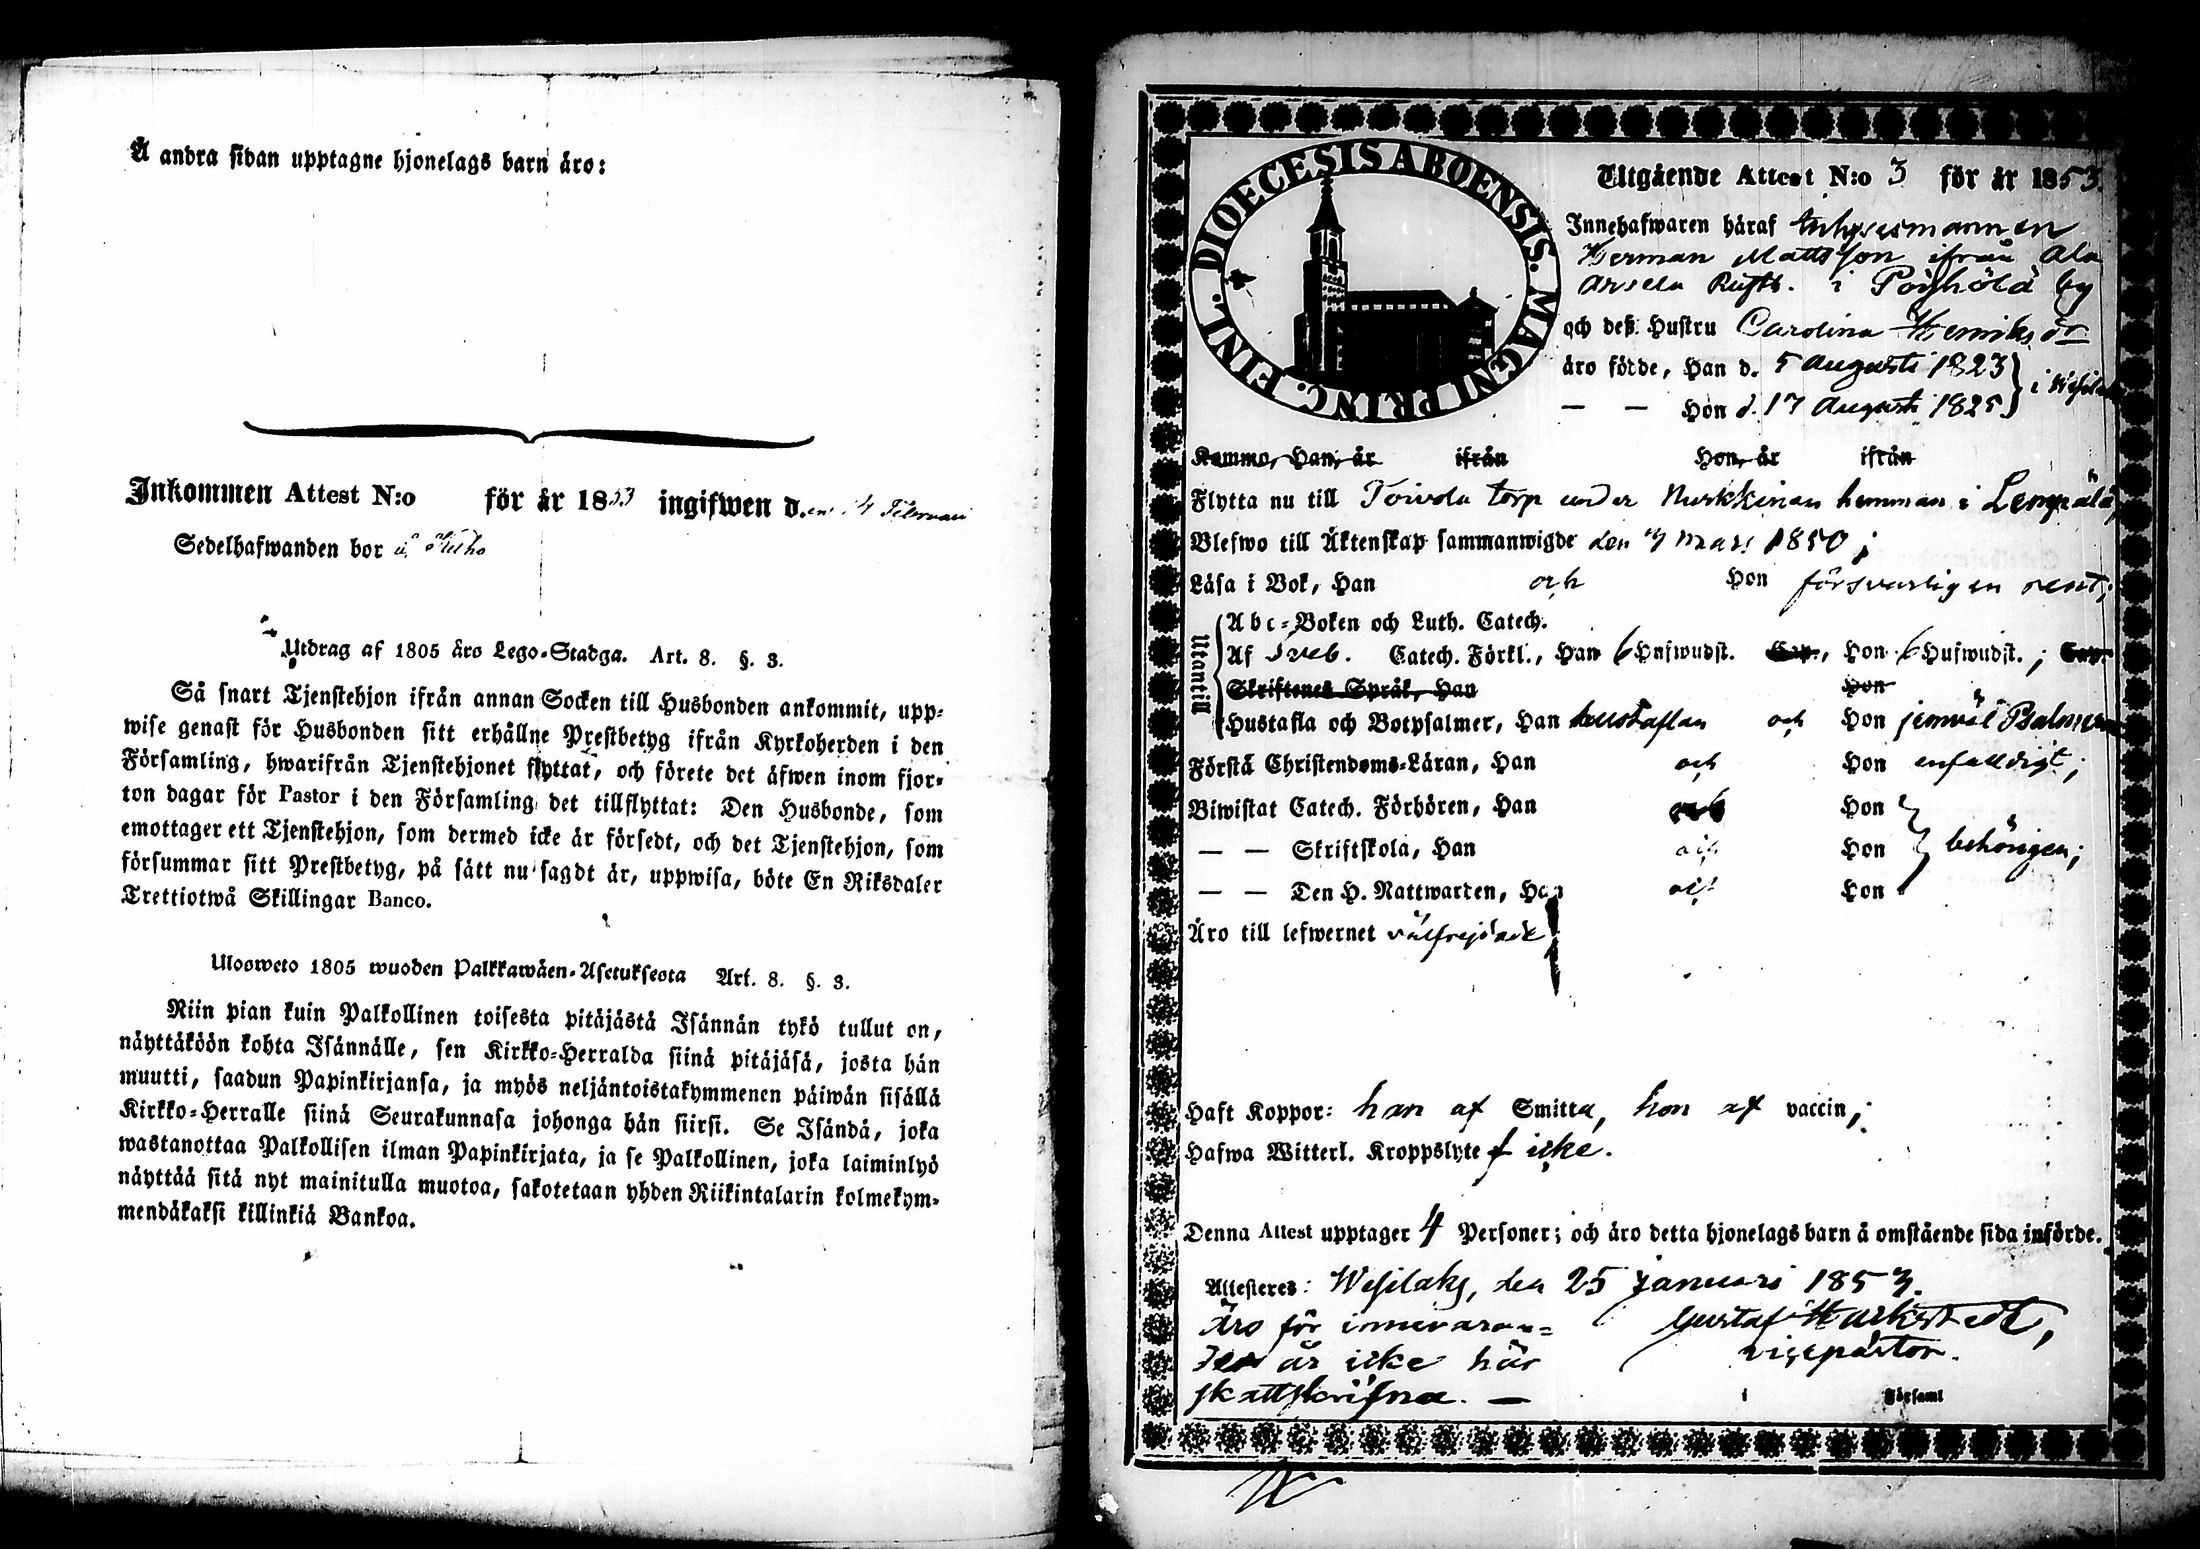 Å andra sidan upptagne hjonelags barn äro:
Inkommen Attest N:o för år 1853 ingifwen d.en 14 Februari
Sedelhafwanden bor å
Utdrag af 1805 års Lego-Stadga. Art. 8. §. 3.
Så snart Tjenstehjon ifrån annan Socken till Husbonden ankommit, upp-
wise genast för Husbonden sitt erhållne Prestbetyg ifrån Kyrkoherden i den
Församling, hwarifrån Tjenstehjonet flyttat, och förete det äfwen inom fjor-
ton dagar för Pastor i den Församling det tillflyttat: Den Husbonde, som
emottager ett Tjenstehjon, som dermed icke är försedt, och det Tjenstehjon, som
försummar sitt Prestbetyg, på sätt nu sagdt är, uppwisa, böte En Riksdaler
Trettiotwå Skillingar Banco.
Ulosweto 1805 wuoden Palkkawäen-Asetuksesta Art. 8. §. 3.
Niin pian kuin Palkollinen toisesta pitäjästä Isännän tykö tullut on,
näyttäköön kohta Isännälle, sen Kirkko-Herralda siinä pitäjäsä, josta hän
muutti, saadun Papinkirjansa, ja myös neljäntoistakymmenen päiwän sisällä
Kirkko-Herralle siinä Seurakunnasa johonga hän siirsi. Se Isändä, joka
wastanottaa Palkollisen ilman Papinkirjata, ja se Palkollinen, joka laiminlyö
näyttää sitä nyt mainitulla muotoa, sakotetaan yhden Riikintalarin kolmekym-
mendäkaksi killinkiä Bankoa.
DIOECESIS ABOENSIS. MAGNI PRINC. FINL.
Utgående Attest N:o 3 för år 1853.
Innehafwaren häraf inhysesmannen
Herman Mattsson ifrån Ala
Arsela Rusth. i Pöyhölä by
och deß Hustru Carolina Henriksdr
äro födde, Han d. 5 Augusti 1823
— — Hon d. 17 Augusti 1825 } i Wesilaks
Komma, Han, är ifrån Hon, är ifrån
Flytta nu till Toivola torp under Nurkkinan hemman i Lempälä,
Blefwo till Äktenskap sammanwigde den 7 Mars 1850;
Läsa i Bok, Han och Hon försvarligen rent;
Utantill
Abc-Boken och Luth. Catech.
Af Sveb. Catech. Förkl., Han 6 Hufwudst. Cap., Hon 6 Hufwudst.; Cap.
Skriftenes Språk, Han Hon
Hustafla och Botpsalmer, Han hustaflan och Hon jemväl
Förstå Christendoms-Läran, Han och Hon enfaldigt;
Biwistat Catech. Förhören, Han och Hon
— — Skriftskola, Han och Hon } behörigen;
— — Den H. Nattwarden, Han och Hon
Äro till lefwernet välfrejdade
Haft Koppor: han af Smitta, hon af vaccin;
Hafwa Witterl. Kroppslyte icke.
Denna Attest upptager 4 Personer; och äro detta hjonelags barn å omstående sida införde.
Attesteres: Wesilaks, den 25 januari 1853.
Äro för innevaran=
de år icke här
skattskrifna. —
Gustaf
vicepastor.
i Församl